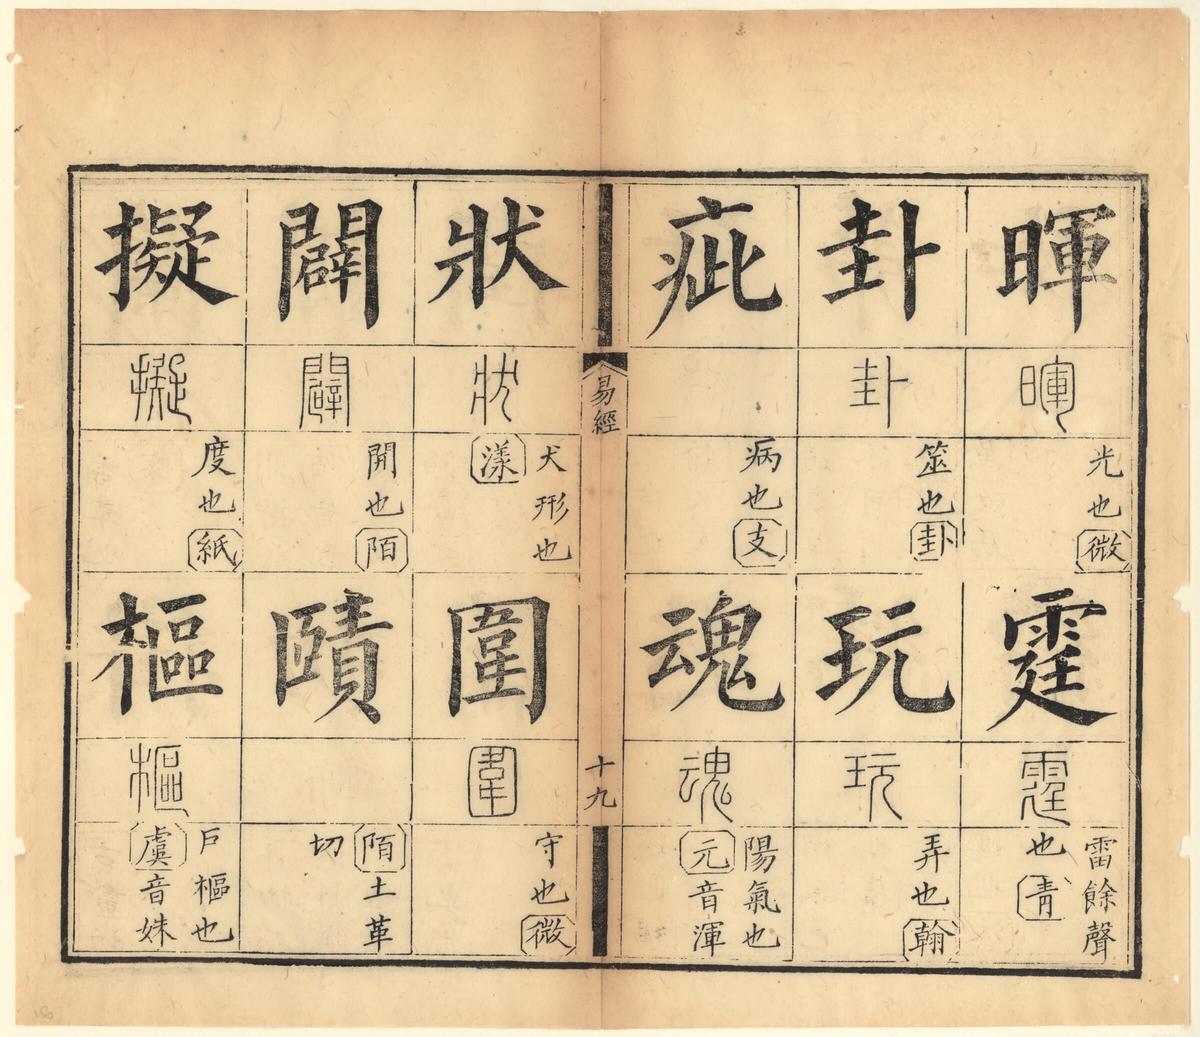 暉
暉
光也微
霆
霆
雷餘聲
也青
卦
卦
筮也卦
玩
玩
弄也翰
疵
病也支
魂
魂
陽氣也
元音渾
易經
十九
狀
狀
犬形也
漾
圍
圍
守也微
闢
闢
開也陌
賾
陌土革
切
擬
擬
度也紙
樞
樞
戶樞也
虞音姝